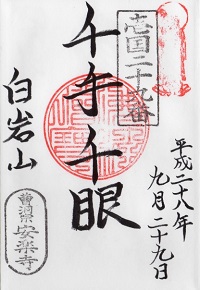 国二十九番
千手千眼
白岩山
曹洞宗 安楽寺
平成二十八年
九月二十九日